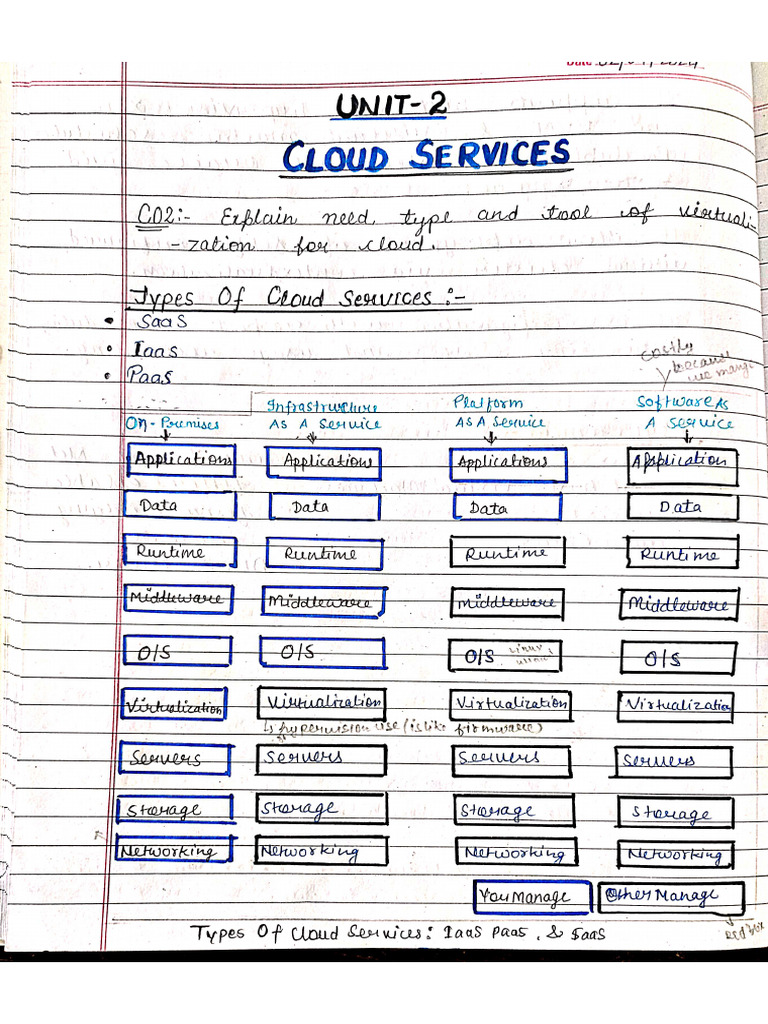 Date
UNIT-2
CLOUD SERVICES
CO2:- Explain need, type and tool of virtuali-
-zation for cloud.
Types Of Cloud Services :-
• SaaS
• IaaS
• PaaS
costly
because
we mange
On-Premises
Infrastructure
As A Service
Platform
As A Service
Software As
A Service
Applications Applications Applications Application
Data Data Data Data
Runtime Runtime Runtime Runtime
Middleware Middleware Middleware Middleware
O/S O/S O/S O/S
Linux
Virtualization Virtualization Virtualization Virtualization
↳ hypervision use (is like firmware)
Servers Servers Servers Servers
Storage Storage Storage Storage
Networking Networking Networking Networking
You Manage Other Manage
Types Of Cloud Services: IaaS PaaS, & SaaS